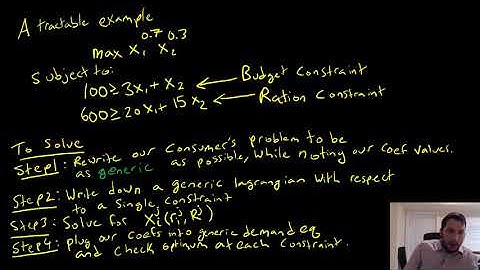 A tractable example
max X₁^0.7 X₂^0.3
Subject to:
100 ≥ 3x₁ + X₂ ← Budget Constraint
600 ≥ 20x₁ + 15x₂ ← Ration Constraint
To Solve
Step1: Rewrite our Consumer's problem to be
as generic as possible, while noting our coef values.
Step2: Write down a generic lagrangian with respect
to a single constraint
Step3: Solve for Xᵢʲ(rᵢʲ, Rʲ)
Step4: plug our coefs into generic demand eq
and check optimum at each constraint.